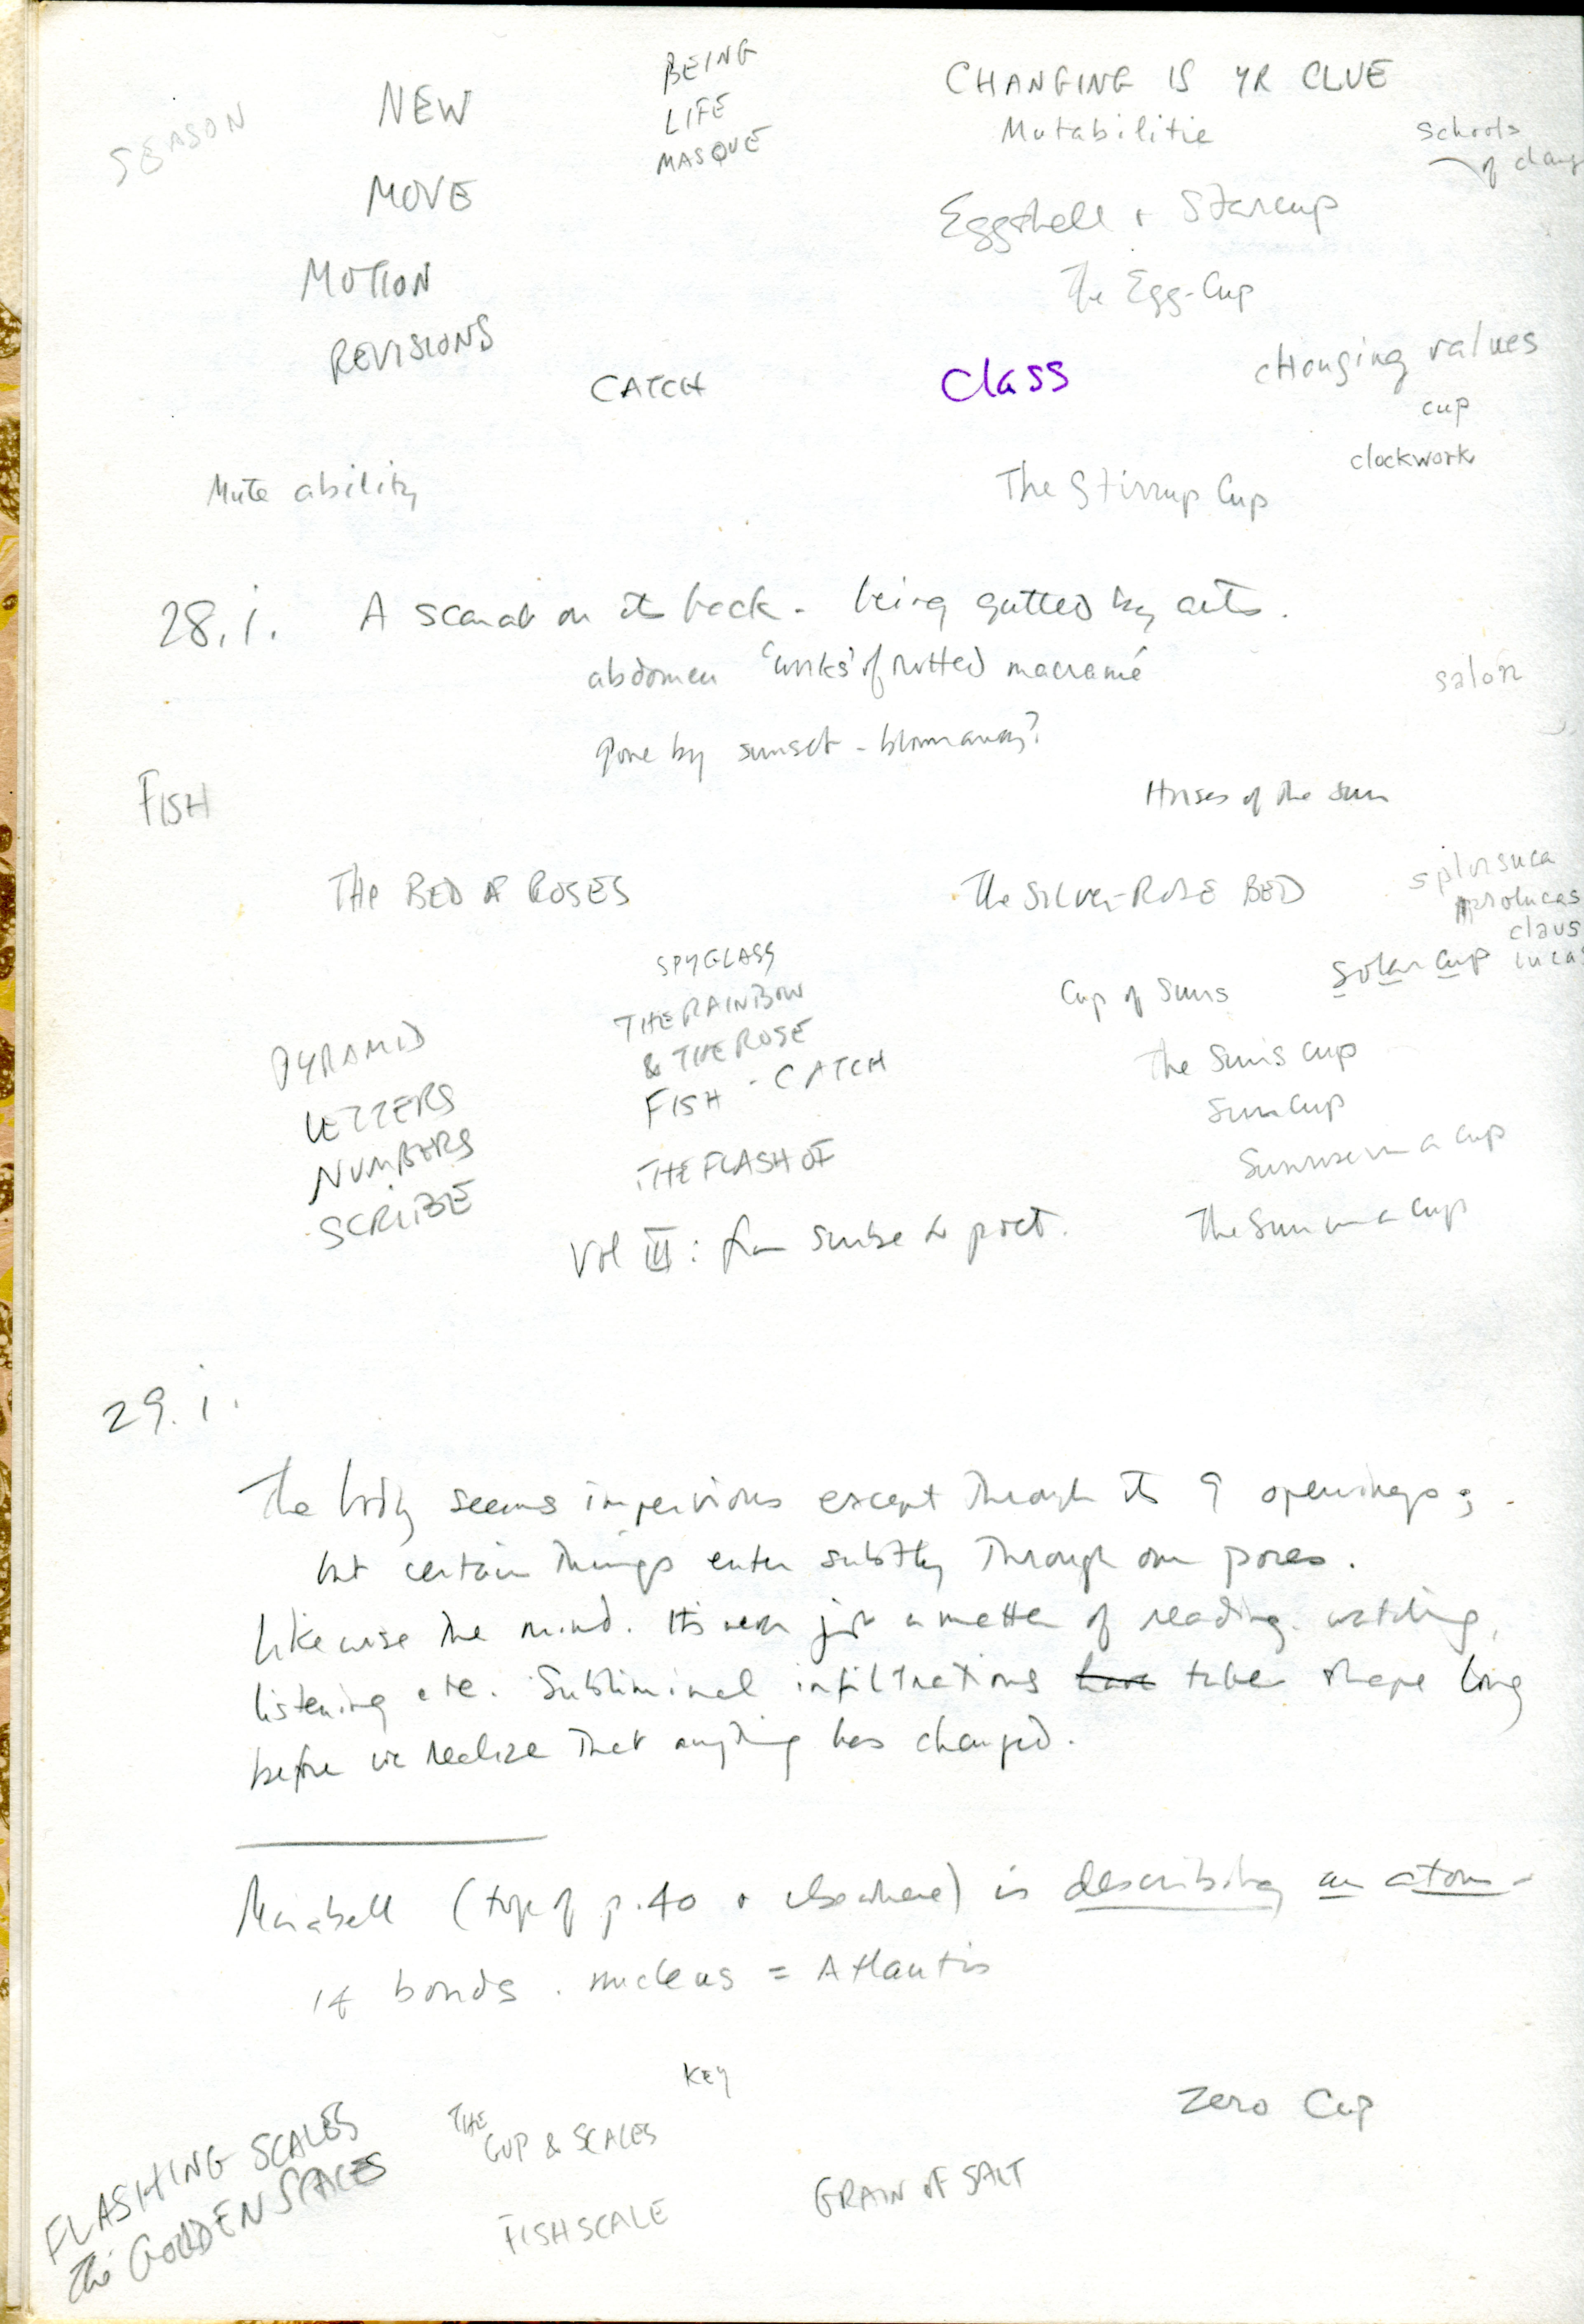 SEASON
NEW
MOVE
MOTION
REVISIONS
BEING
LIFE
MASQUE
CHANGING IS YR CLUE
Mutabilitie
schools
of
Eggshell + Starcup
The Egg-Cup
CATCH
Class
changing values
cup
clockwork
Mute ability
The Stirrup Cup
28.i. A scarab on its back - being gutted by ants.
abdomen 'works' of rotted macramé
salon
gone by sunset - blown away?
FISH
Horses of the Sun
THE BED OF ROSES
The SILVER-ROSE BED
claus
lucas
solar cup
SPYGLASS
THE RAINBOW
& THE ROSE
FISH - CATCH
THE FLASH OF
Cup of Suns
The Sun's cup
Sun Cup
Sunrise in a cup
The Sun in a cup
PYRAMID
LETTERS
NUMBERS
SCRIBE
Vol III: from scribe to poet.
29.i.
The body seems impervious except through its 9 openings;
but certain things enter subtly through our pores.
Likewise the mind. It's never just a matter of reading, watching,
listening etc. Subliminal infiltrations have take shape long
before we realize that anything has changed.
Mirabell (top of p.40 + elsewhere) is describing an atom -
14 bonds. nucleus = Atlantis
KEY
THE
CUP & SCALES
Zero Cup
FLASHING SCALES
The GOLDEN SCALES
FISHSCALE
GRAIN OF SALT